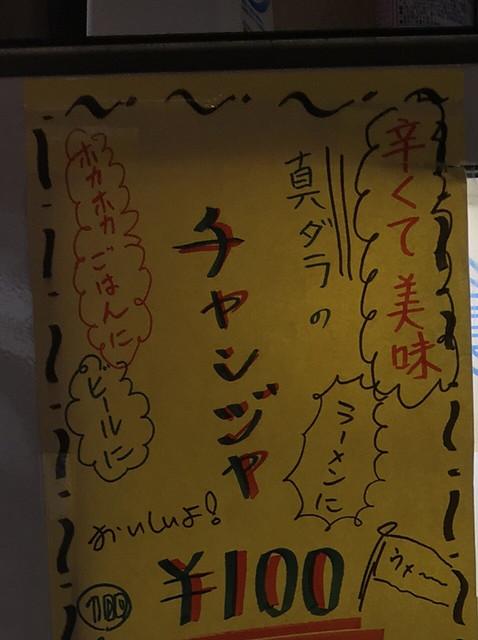 辛くて美味
真ダラの
チャンジャ
ホカホカごはんに
ビールに
ラーメンに
おいしいよ!
ウメ〜
¥100
100